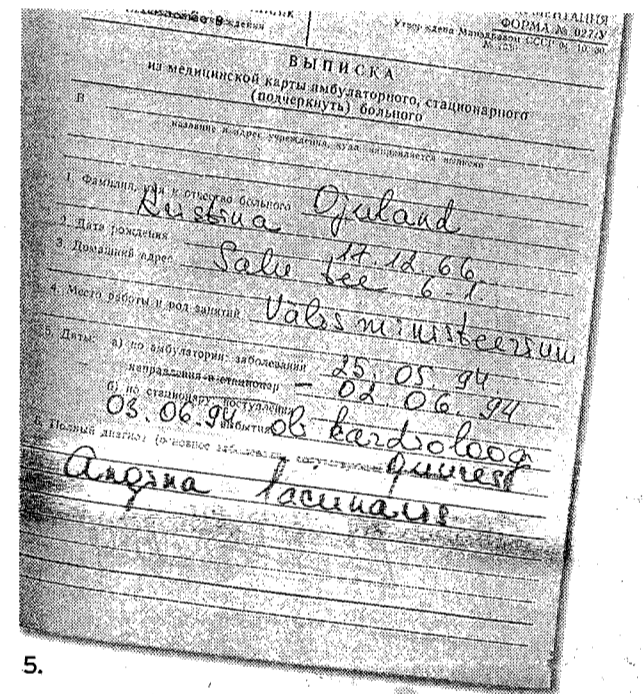 ФОРМА № 027/У
Утверждена Минздравом СССР 04.10.80
ВЫПИСКА
из медицинской карты амбулаторного, стационарного
(подчеркнуть) больного
В
название и адрес учреждения, куда направляется выписка
1. Фамилия, имя и отчество больного Ojuland
Kristina
2. Дата рождения 17.12 66.
3. Домашний адрес Salu tee 6-1.
4. Место работы и род занятий Välisministeerium
5. Даты: а) по амбулатории: заболевания 25.05.94.
направления в стационар – 02 06.94
б) по стационару: поступления
03.06.94. выбытия ob kardioloog
6. Полный диагноз (основное заболевание, сопутствующие
Angina lacunaris
5.